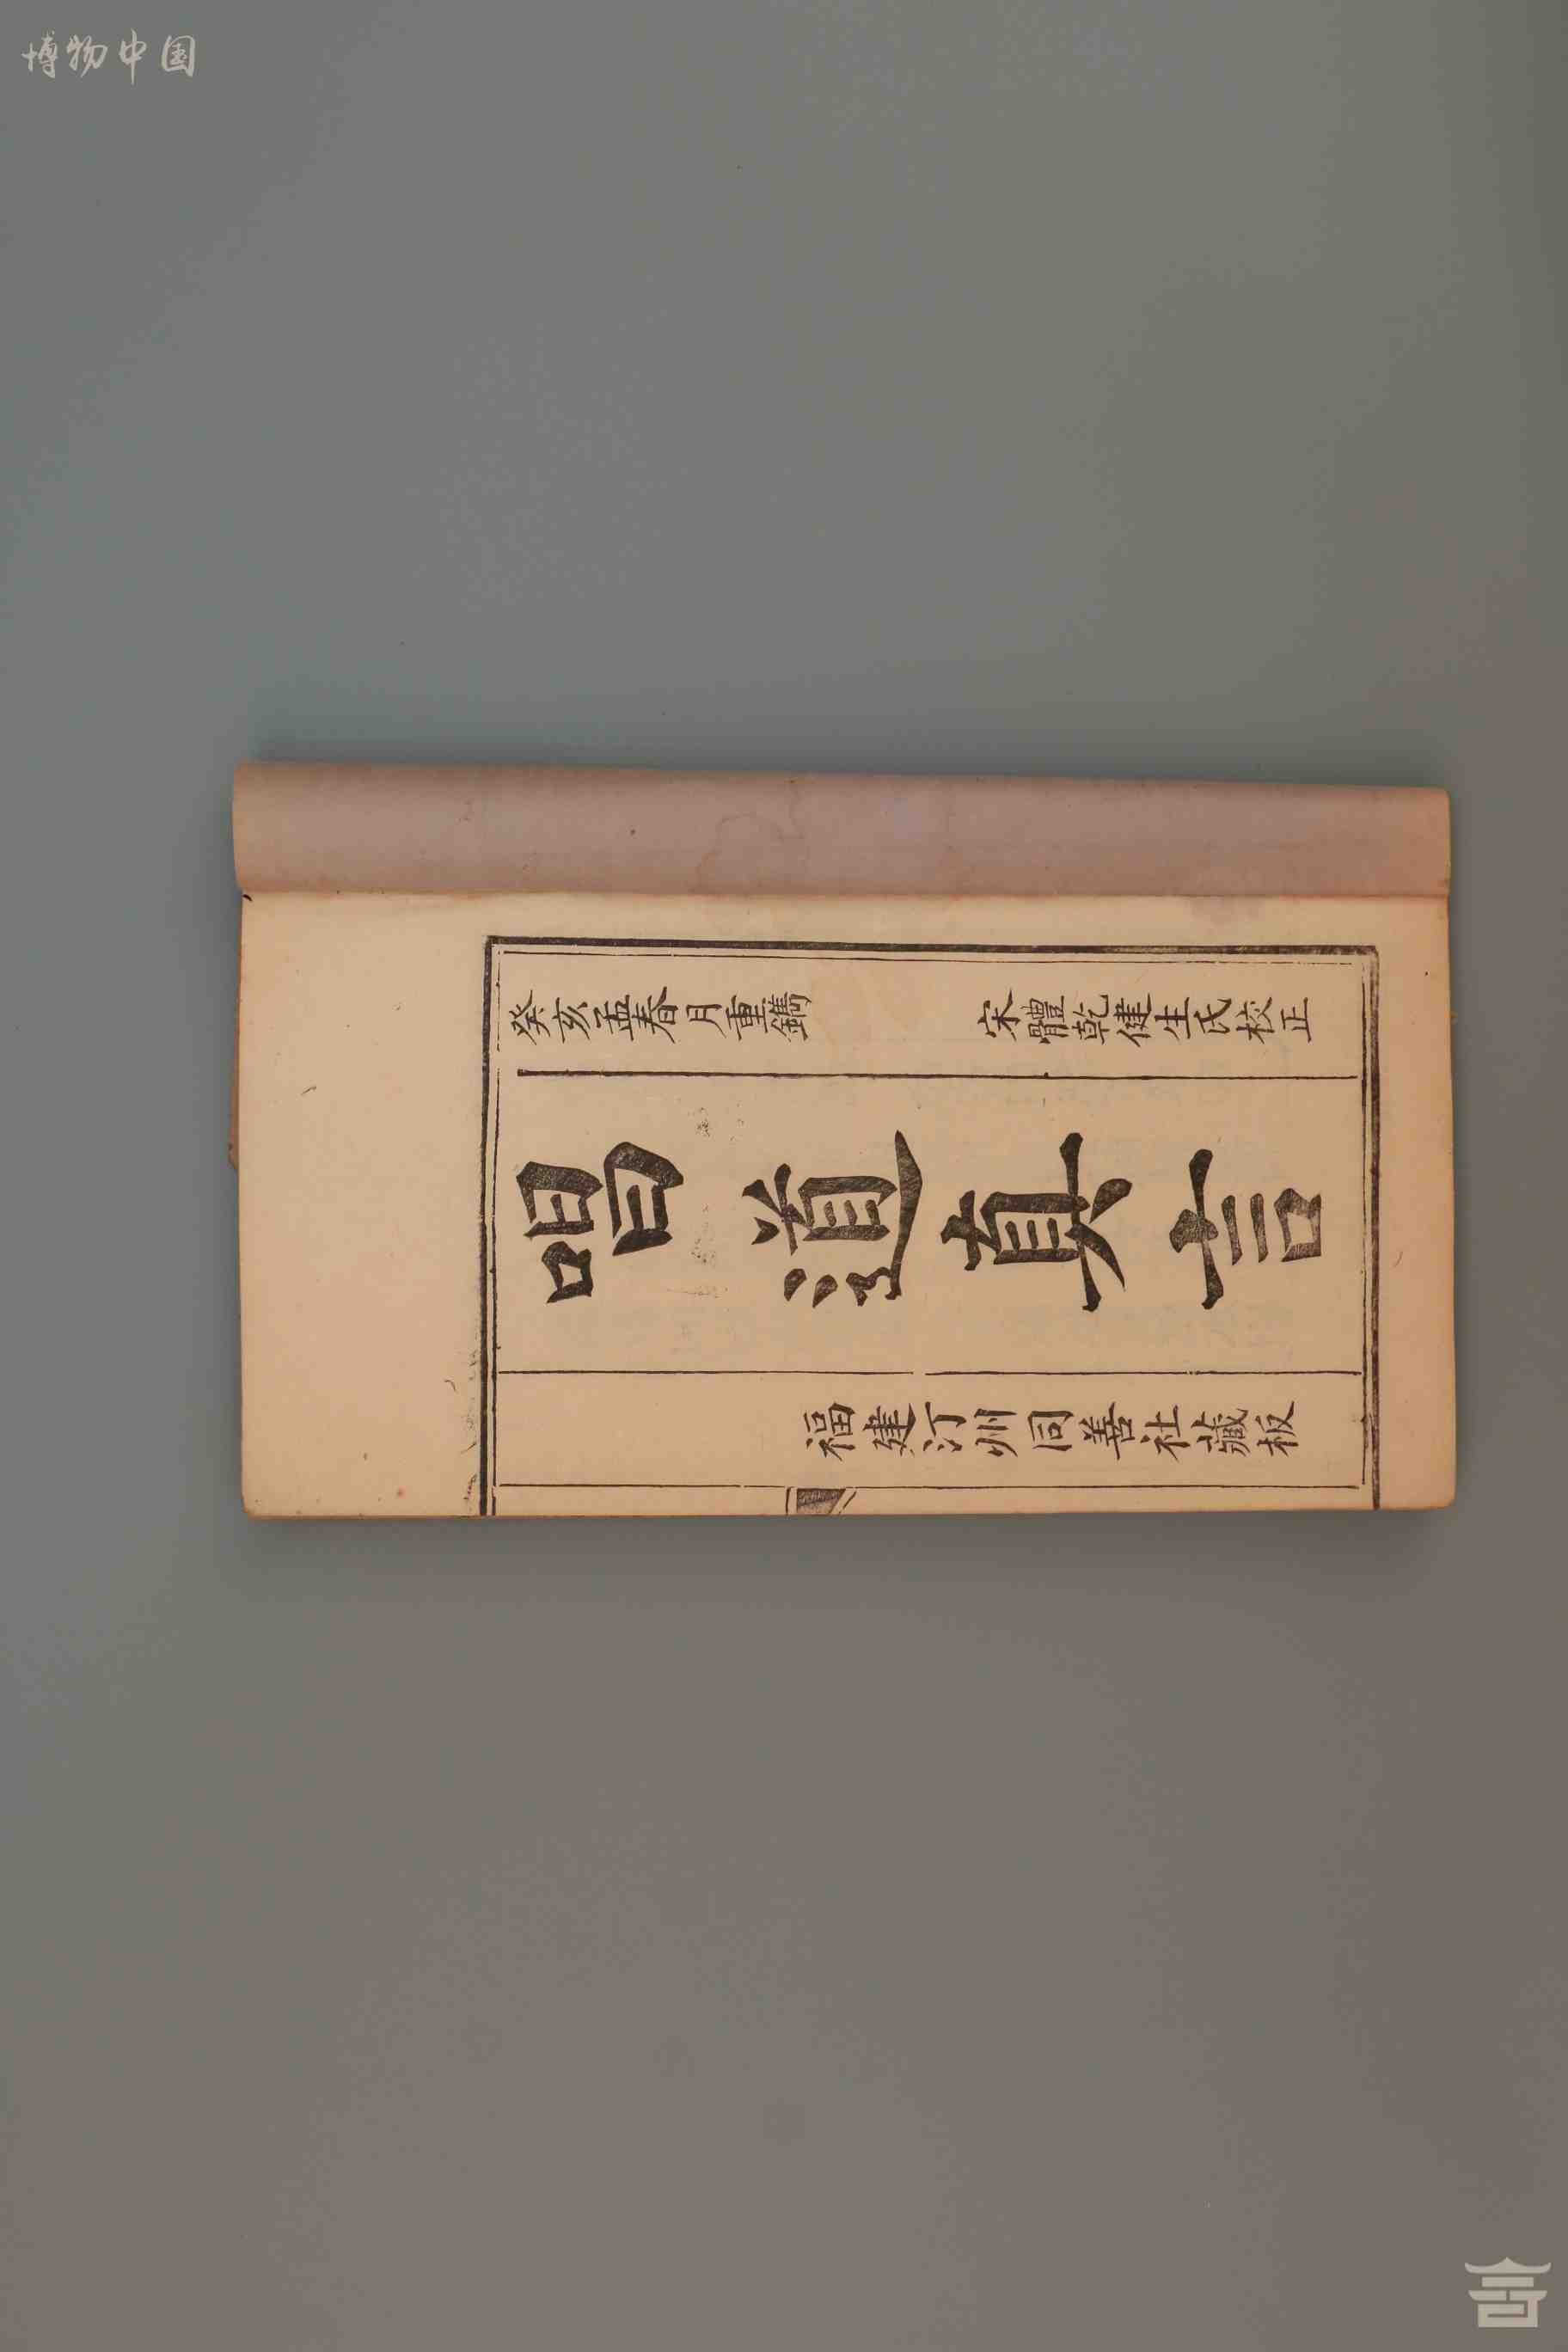 博物中国
癸亥孟春月重鐫
宋體乾健生氏校正
唱道真言
福建汀州同善社藏板